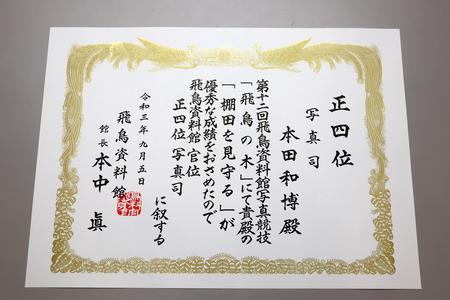 正四位
写真司
本田和博殿
第十二回飛鳥資料館写真競技
「飛鳥の木」にて貴殿の
「棚田を見守る」が
優秀な成績をおさめたので
飛鳥資料館官位
正四位 写真司
に叙する
令和三年九月五日
飛鳥資料館
館長 本中 眞